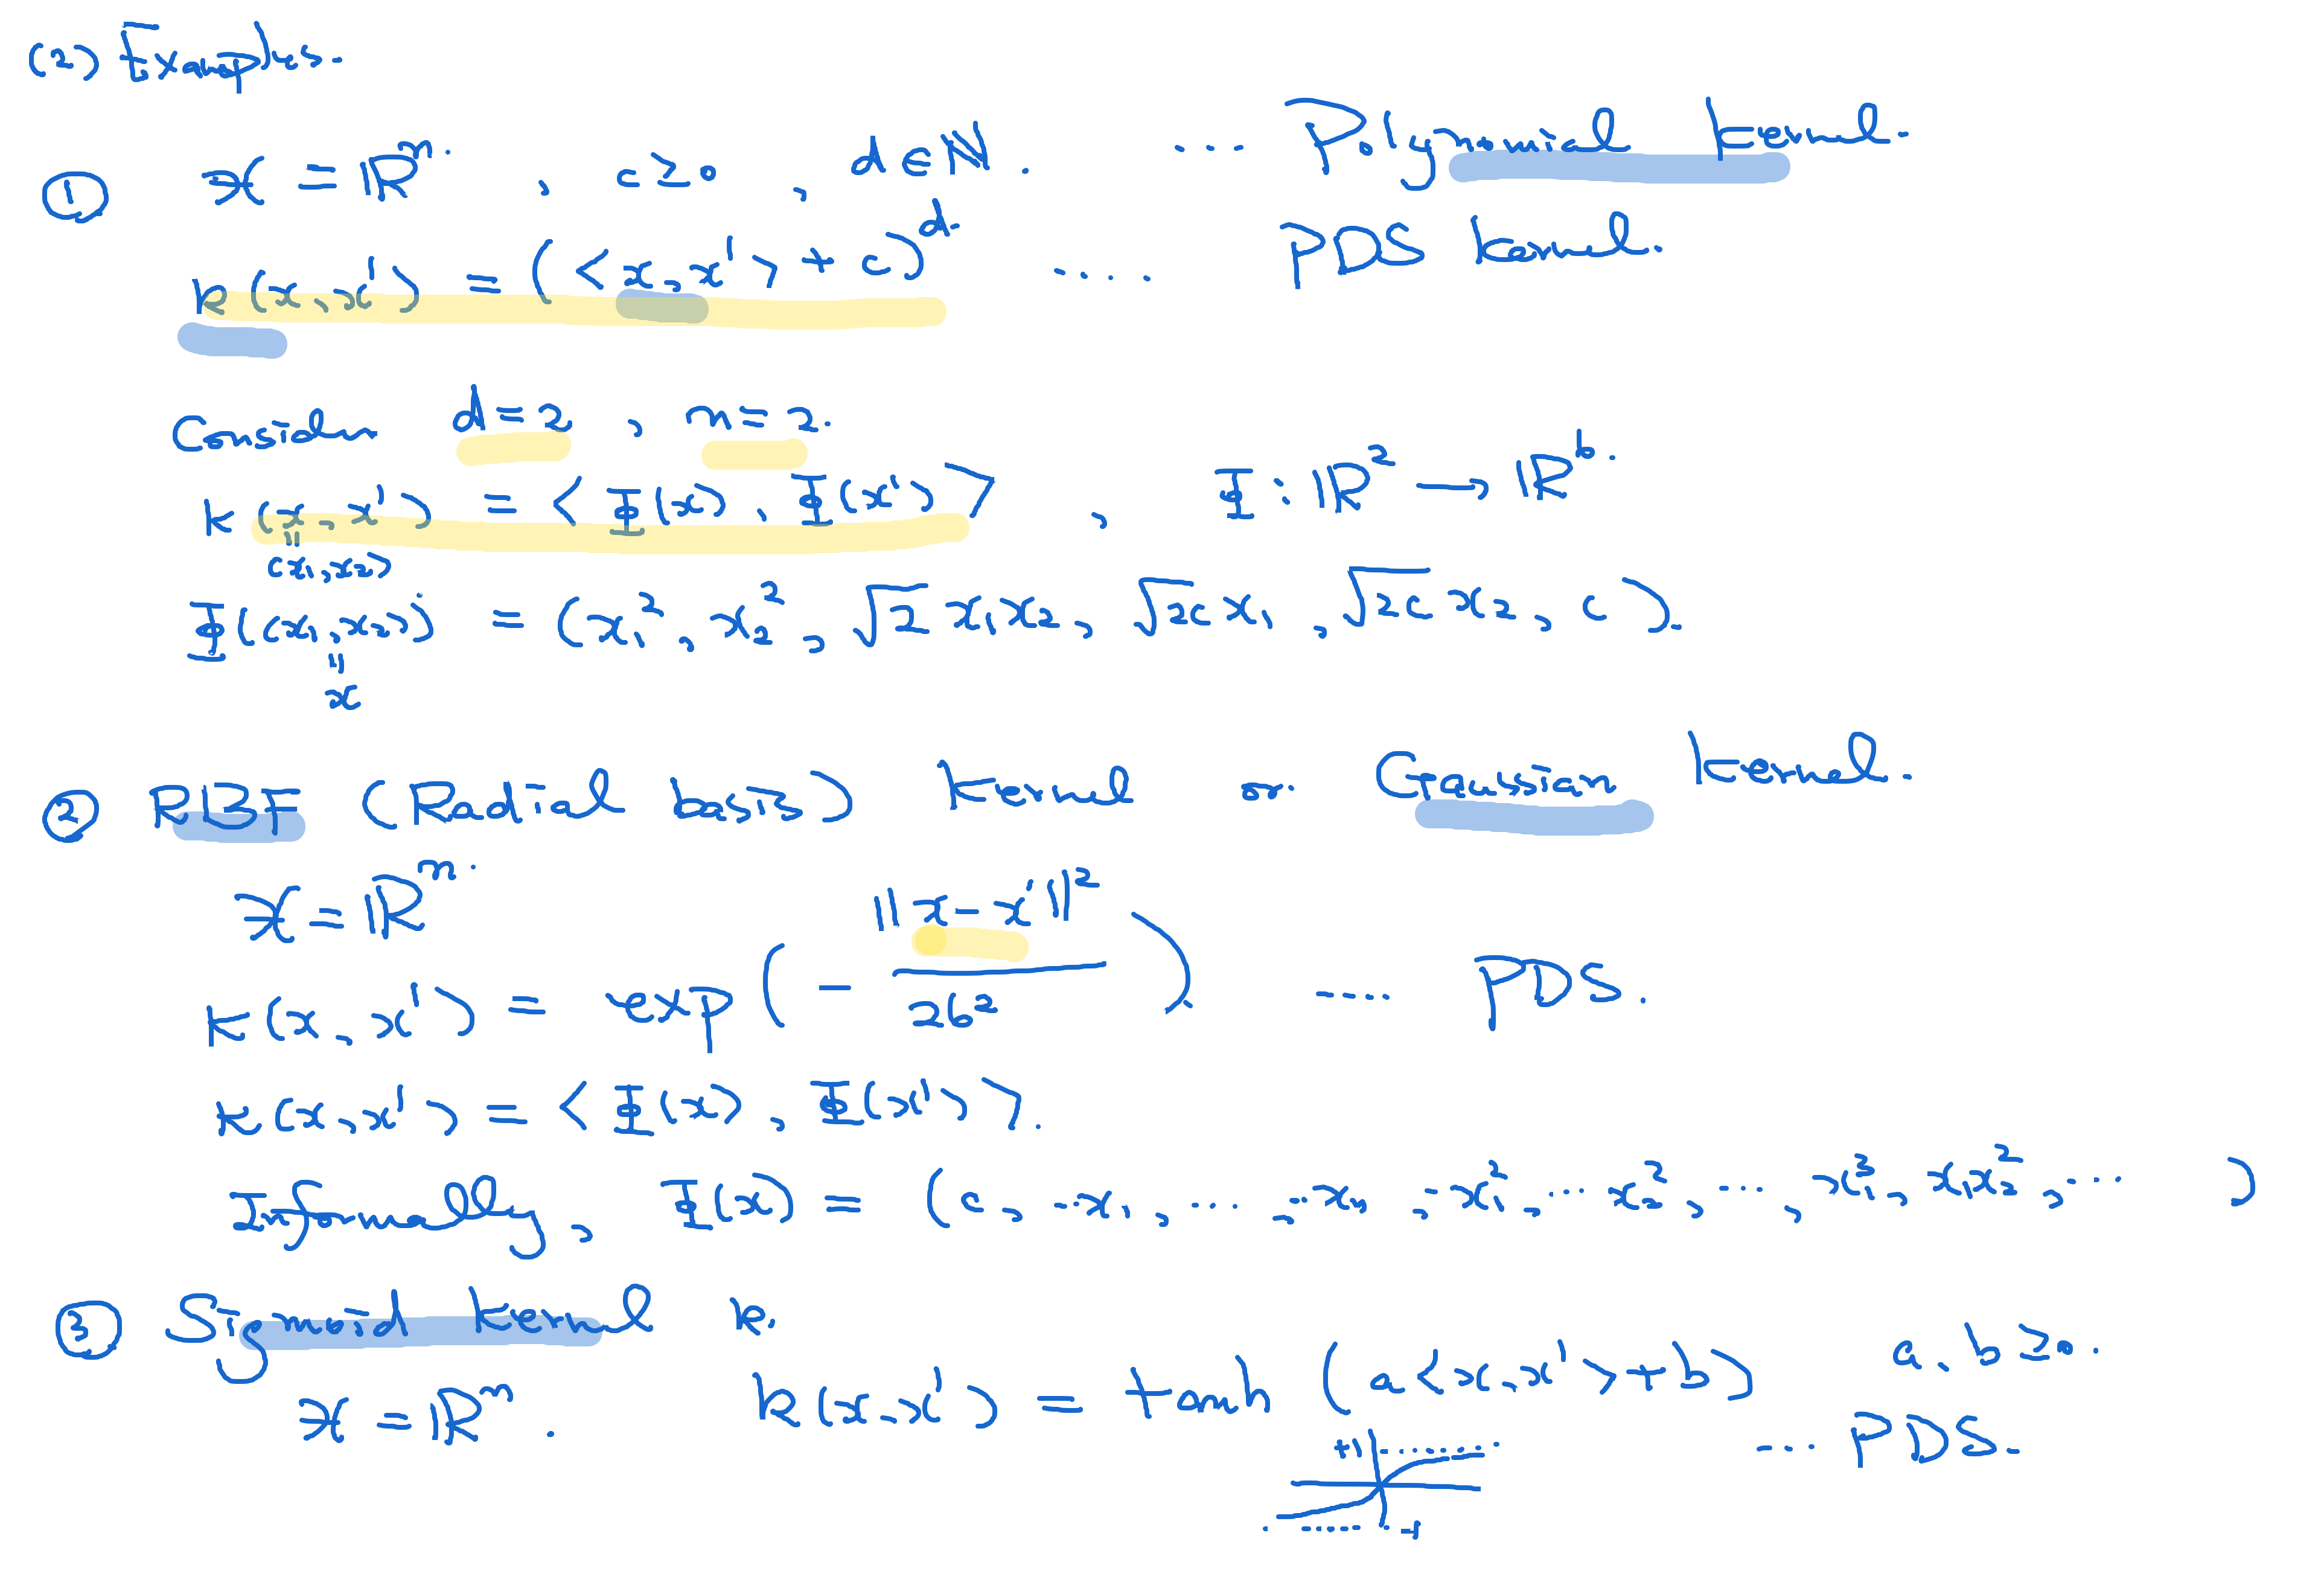 (2) Examples.
① 𝒳 = ℝⁿ. , c ≥ 0 , d ∈ ℕ. ... Polynomial kernel.
K(x, x') = (<x, x'> + c)^d. .... PDS kernel.
Consider d = 2 , n = 2.
K(x, x') = <Φ(x), Φ(x')> , Φ : ℝ² → ℝ⁶.
"
(x₁, x₂)
Φ((x₁, x₂)) = (x₁², x₂², √2 x₁x₂, √2c x₁, √2c x₂, c).
"
x
② RBF (Radial basis) kernel or Gaussian kernel.
𝒳 = ℝⁿ.
K(x, x') = exp(- ||x - x'||² / 2σ²) .... PDS.
K(x, x') = <Φ(x), Φ(x')>.
Informally, Φ(x) = (c, ..x₁, ...., ..xₙ, ..x₁², ... xₙ², ..., x₁³, x₁x₂², ... )
③ Sigmoid kernel K.
𝒳 = ℝⁿ. K(x, x') = tanh(a<x, x'> + b) a, b ≥ 0.
... PDS.
+1
-1